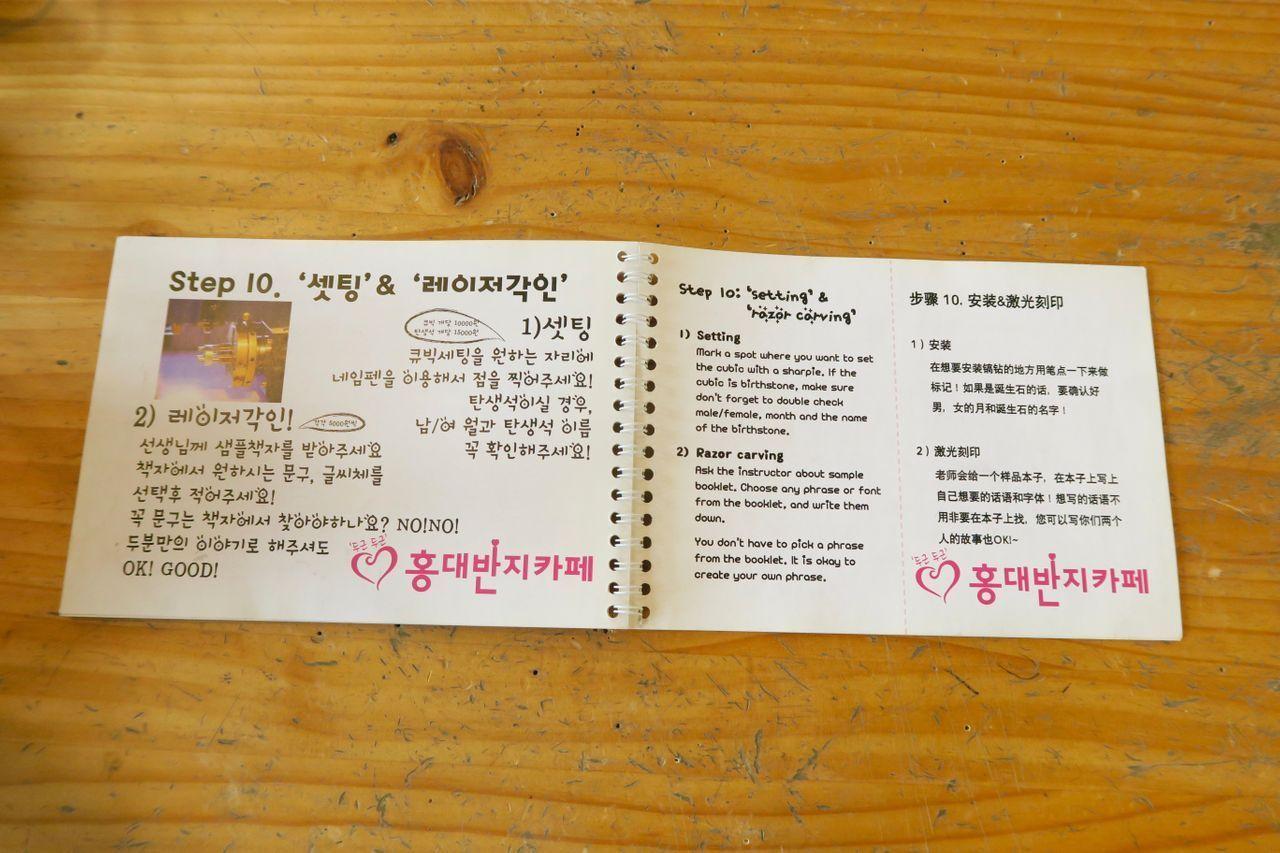 Step 10. ‘셋팅’ & ‘레이저각인’
큐빅 개당 10000원
탄생석 개당 15000원
1)셋팅
큐빅세팅을 원하는 자리에
네임펜을 이용해서 점을 찍어주세요!
탄생석이실 경우,
남/여 월과 탄생석 이름
꼭 확인해주세요!
2) 레이저각인!
각각 5000원씩
선생님께 샘플책자를 받아주세요
책자에서 원하시는 문구, 글씨체를
선택후 적어주세요!
꼭 문구는 책자에서 찾아야하나요? NO!NO!
두분만의 이야기로 해주셔도
OK! GOOD!
'두근 두근'
홍대반지카페
Step 10: ‘setting’ &
‘razor carving’
1) Setting
Mark a spot where you want to set
the cubic with a sharpie. If the
cubic is birthstone, make sure
don't forget to double check
male/female, month and the name
of the birthstone.
2) Razor carving
Ask the instructor about sample
booklet. Choose any phrase or font
from the booklet, and write them
down.
You don't have to pick a phrase
from the booklet. It is okay to
create your own phrase.
步骤 10. 安装&激光刻印
1）安装
在想要安装镐钻的地方用笔点一下来做
标记！如果是诞生石的话，要确认好
男，女的月和诞生石的名字！
2）激光刻印
老师会给一个样品本子，在本子上写上
自己想要的话语和字体！想写的话语不
用非要在本子上找，您可以写你们两个
人的故事也OK!~
'두근 두근'
홍대반지카페